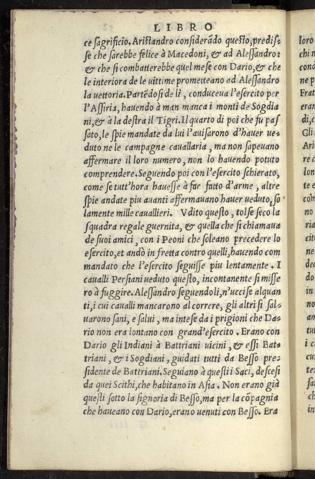 LIBRO
ce sagrificio. Aristandro considerādo questo, predis-
se che sarebbe felice à Macedoni, & ad Alessandro:
& che si combatterebbe quel mese con Dario, & che
le interiora de le vittime prometteano ad Alessandro
la vettoria. Partēdosi de lì, conduceua l'esercito per
l'Assiria, hauendo à man manca i monti de Sogdia
ni, & à la destra il Tigri. Il quarto dì poi che fu pas
sato, le spie mandate da lui l'auisarono d'hauer ue-
duto ne le campagne cauallaria, ma non sapeuano
affermare il loro numero, non lo hauendo potuto
comprendere. Seguendo poi con l'esercito schierato,
come se tutt'hora hauesse à far fatto d'arme, altre
spie andate piu auanti affermauano hauer ueduto, so
lamente mille cauallieri. Vdito questo, tolse seco la
squadra regale guernita, & quella che si chiamaua
de suoi amici, con i Peoni che soleano precedere lo
esercito, et andò in fretta contro quelli, hauendo com
mandato che l'esercito seguisse piu lentamente. I
caualli Persiani ueduto questo, incontanente si misse
ro à fuggire. Alessandro seguendoli, n'uccise alquan
ti, i cui caualli mancarono al correre, gli altri si sal-
uarono sani, e salui, ma intese da i prigioni che Da-
rio non era lontano con grand'esercito. Erano con
Dario gli Indiani à Battriani uicini, & essi Bat-
triani, & i Sogdiani, guidati tutti da Besso pre-
sidente de Battriani. Seguiano à questi i Saci, descesi
da quei Scithi, che habitano in Asia. Non erano già
questi sotto la signoria di Besso, ma per la cōpagnia
che haueano con Dario, erano uenuti con Besso. Era